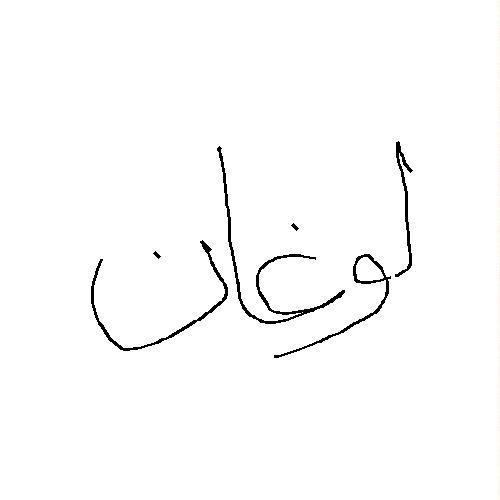 لوغان